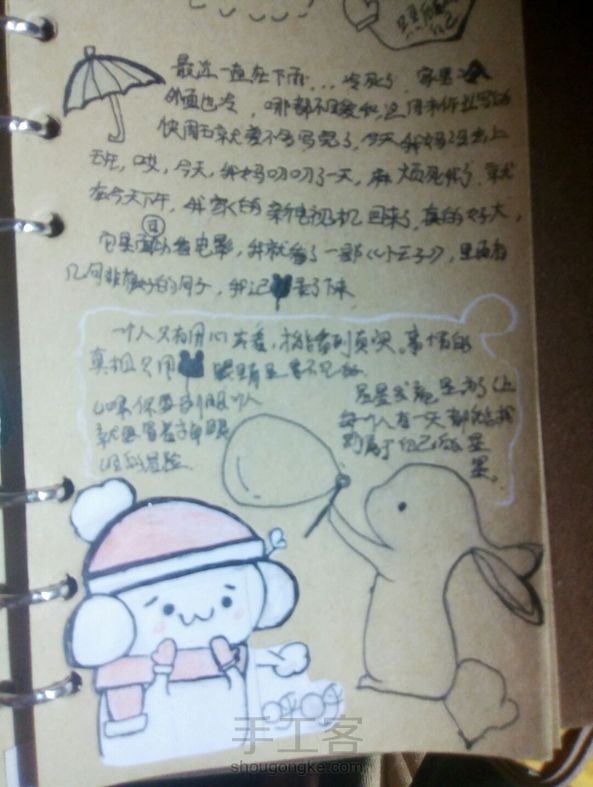 最近一直在下雨...冷死了,家里冷
外面也冷,哪都不暖和,这周末作业写的
快周五就差不多写完了,今天我妈没去上
班,哎,今天,我妈叨叨了一天,麻烦死了,就
在今天下午,我家的新电视机回来了,真的好大,
它里面可以看电影,我就看了一部《小王子》,里面有
几句非常好的句子,我记录了下来
一个人只有用心去看,才能看到真实。事情的
真相只用眼睛是看不见的
如果你要驯服一个人
就要冒着掉眼
泪的危险
星星发亮是为了让
每一个人有一天都能找
到属于自己的星
星。
手工客
shougongke.com